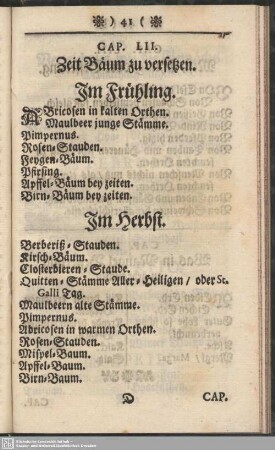 ❋ ) 41 ( ❋
CAP. LII.
Zeit Bäum zu versetzen.
Im Frühling.
ABricosen in kalten Orthen.
Maulbeer junge Stämme.
Pimpernus.
Rosen-Stauden.
Feygen-Bäum.
Pfirsing.
Apffel-Bäum bey zeiten.
Birn-Bäum bey zeiten.
Im Herbst.
Berberiß-Stauden.
Kirsch-Bäum.
Closterbieren-Staude.
Quitten-Stämme Aller-Heiligen / oder St.
Galli Tag.
Maulbeern alte Stämme.
Pimpernus.
Abricosen in warmen Orthen.
Rosen-Stauden.
Mispel-Baum.
Apffel-Baum.
Birn-Baum.
D CAP.